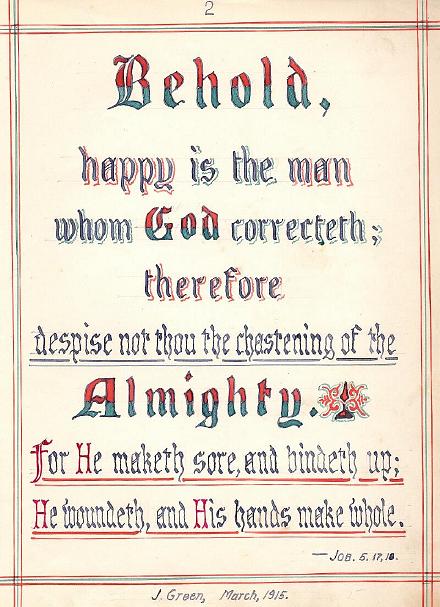 2
Behold,
happy is the man
whom God correcteth;
therefore
despise not thou the chastening of the
Almighty.
For He maketh sore, and bindeth up;
He woundeth, and His hands make whole.
— JOB. 5. 17, 18.
J. Green, March, 1915.